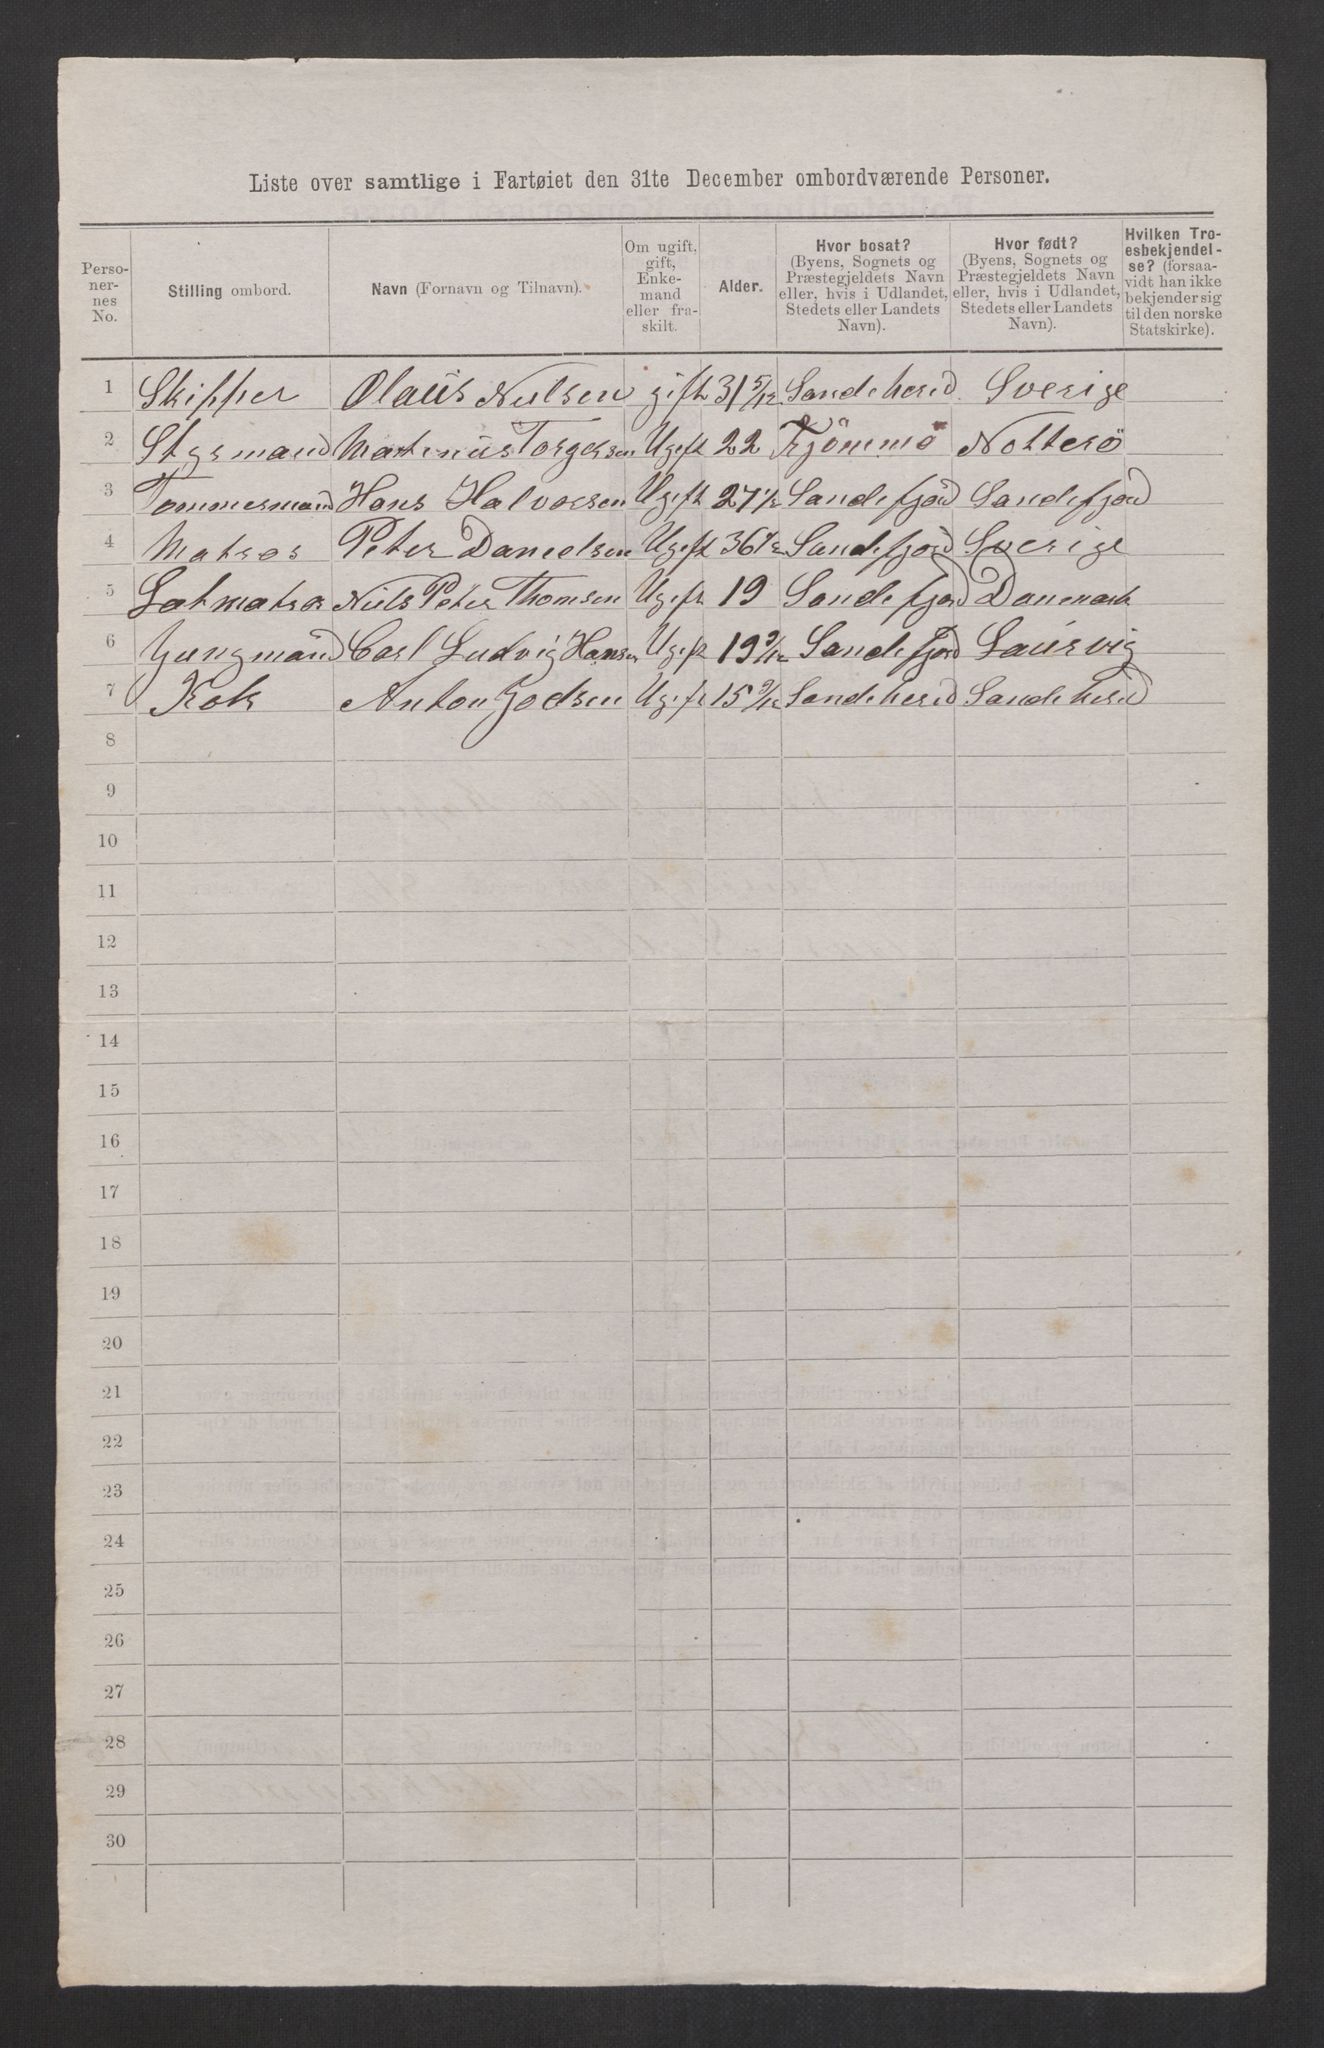 Liste over samtlige i Fartøiet den 31te December ombordværende Personer.
Perso-
ner-
nes
No.
Stilling ombord.
Navn (Fornavn og Tilnavn).
Om ugift,
gift,
Enke-
mand
eller fra-
skilt.
Alder.
Hvor bosat?
(Byens, Sognets og
Præstegjeldets Navn
eller, hvis i Udlandet,
Stedets eller Landets
Navn).
Hvor født?
(Byens, Sognets og
Præstegjeldets Navn
eller, hvis i Udlandet,
Stedets eller Landets
Navn).
Hvilken Tro-
esbekjendel-
se? (forsaa-
vidt han ikke
bekjender sig
til den norske
Statskirke).
1 Skipper Olaus Nielsen gift 31 5/12 Sandeherid Sverige
2 Styrmand Martinius Torgersen Ugift 22 Kjømmø Notterö
3 Tommermand Hans Halvorsen Ugift 27 Sandefjord Sandefjord
4 Matros Peter Danielsen Ugift 36 Sandefjord Sverige
5 Letmatros Niels Peter Thomsen Ugift 19 Sandefjord Danmark
6 Jungmand Carl Ludvig Hansen Ugift 19 9/12 Sandefjord Laurvig
7 Kok Anton Jodsen Ugift 15 9/12 Sandeherid Sandeherid
8
9
10
11
12
13
14
15
16
17
18
19
20
21
22
23
24
25
26
27
28
29
30